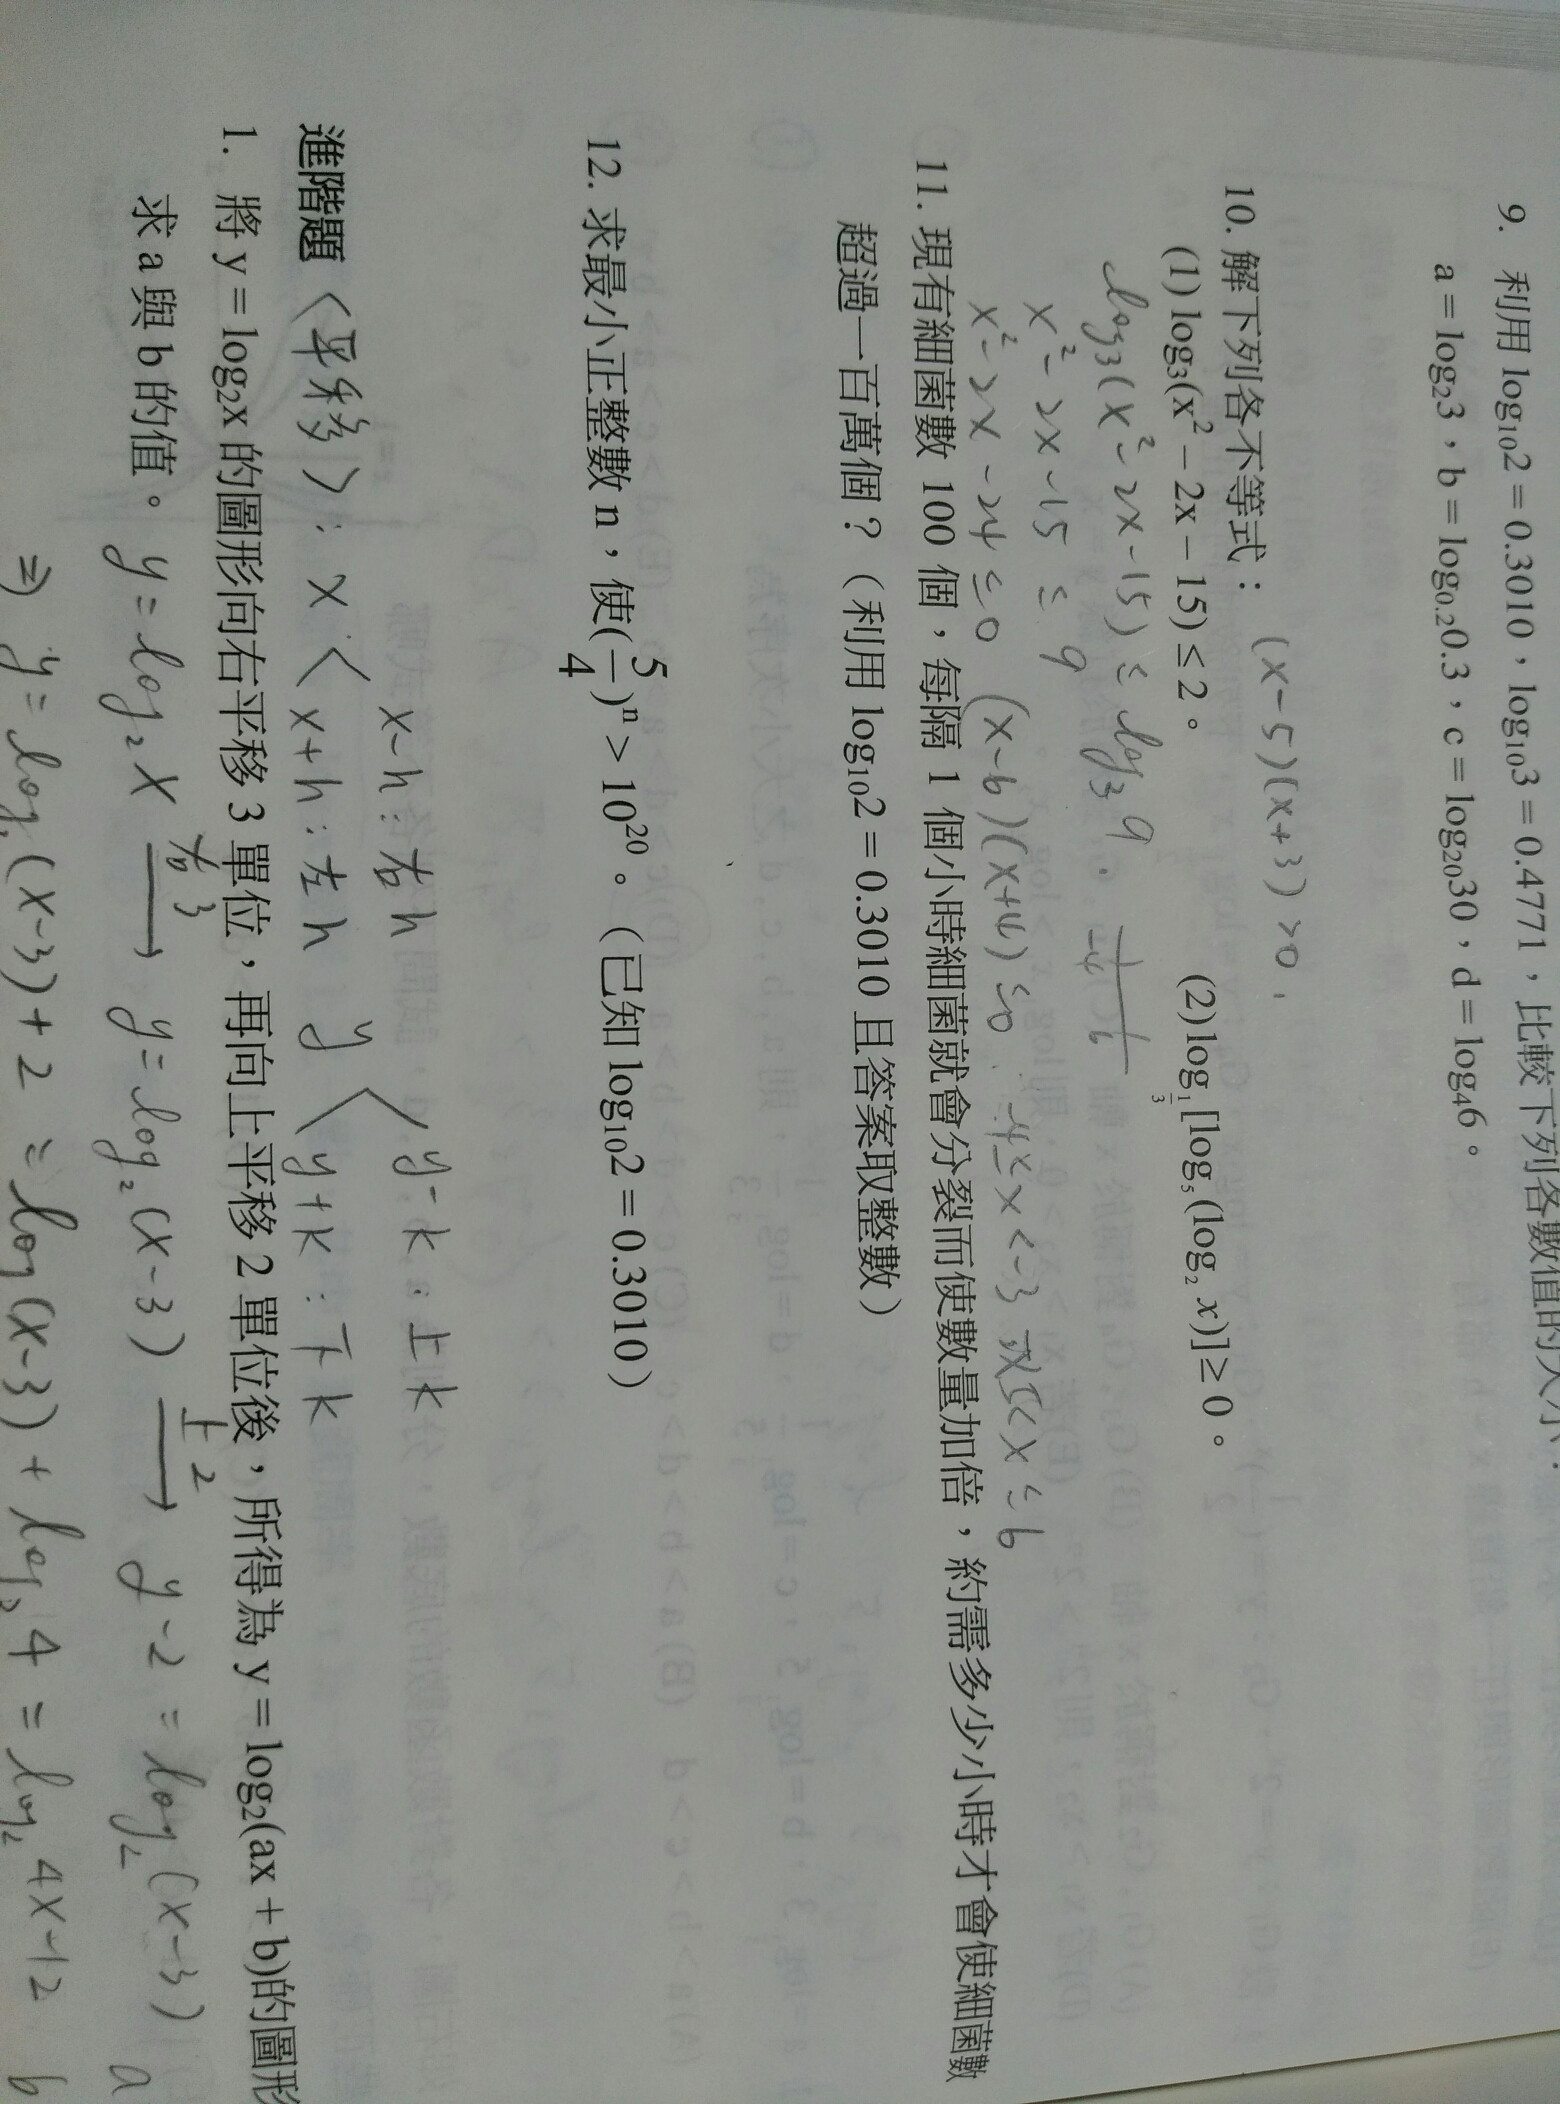 9. 利用 log₁₀2 = 0.3010，log₁₀3 = 0.4771，比較下列各數值的大小：
a = log₂3，b = log₀.₂0.3，c = log₂₀30，d = log₄6。
10. 解下列各不等式：
(x-5)(x+3)>0,
(1) log₃(x² − 2x − 15) ≤ 2。 (2) log_{1/3}[log₅(log₂ x)] ≥ 0。
log₃(x²-2x-15) ≤ log₃9
x²-2x-15 ≤ 9
x²-2x-24 ≤ 0 (x-6)(x+4) ≤0 -4≤x<-3 或5<x≤6
-4 6
11. 現有細菌數 100 個，每隔 1 個小時細菌就會分裂而使數量加倍，約需多少小時才會使細菌數
超過一百萬個？（利用 log₁₀2 = 0.3010 且答案取整數）
12. 求最小正整數 n，使(5/4)ⁿ > 10²⁰。（已知 log₁₀2 = 0.3010）
x-h：右h y-k：上k
進階題〈平移〉：x x+h：左h y y+k：下k
1. 將 y = log₂x 的圖形向右平移 3 單位，再向上平移 2 單位後，所得為 y = log₂(ax + b)的圖形
求 a 與 b 的值。 y = log₂x 右3→ y = log₂(x-3) 上2→ y-2 = log₂(x-3) a
⇒ y = log₂(x-3)+2 = log(x-3) + log₂4 = log₂4x-12 b